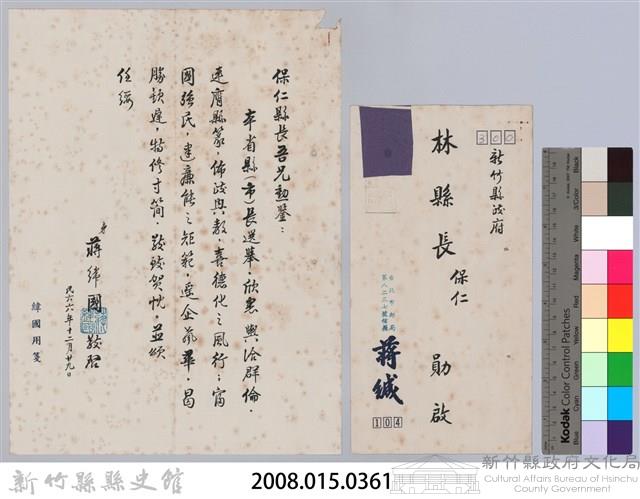 保仁縣長吾兄勳鑒：
本省縣（市）長選舉，欣悉　輿洽群倫，
連膺縣篆，佈政與教，喜德化之風行；富
國強民，建廉能之矩範，逖企氣華，曷
勝欽遲，特修寸簡，敬致賀忱，並頌
任綏
弟 蔣緯國 敬啓
民六六年十二月廿九日
緯國用箋
300
新竹縣政府
林縣長 保仁 勛啟
台北市郵局
第八二三七號信箱
蔣緘
104
Kodak Color Control Patches
Blue
Cyan
Green
Yellow
Red
Magenta
White
3/Color
Black
新竹縣縣史館
2008.015.0361
新竹縣政府文化局
Cultural Affairs Bureau of Hsinchu
County Government